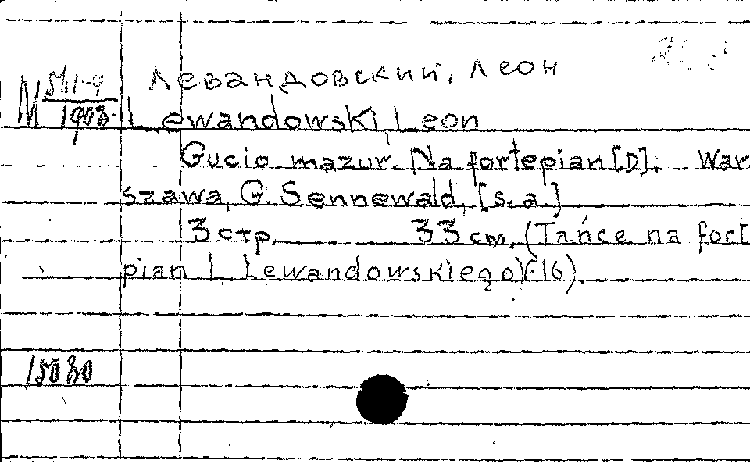 Левандовский, Леон
М 541-9
1903
Lewandowski, Leon
Gucio mazur. Na fortepian [D]. War
szawa, G. Sennewald, [s.a.]
3 стр. 33 cm. (Tańce na fort
pian L. Lewandowskiego)(16).
15080